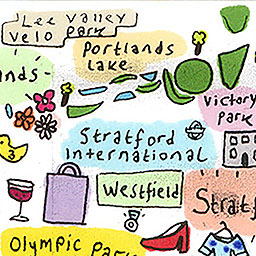 Lee Valley
Velo Park
Portlands
Lake
ands-
Victory
Park
3
Stratford
International
Westfield
Stratf
Olympic Park